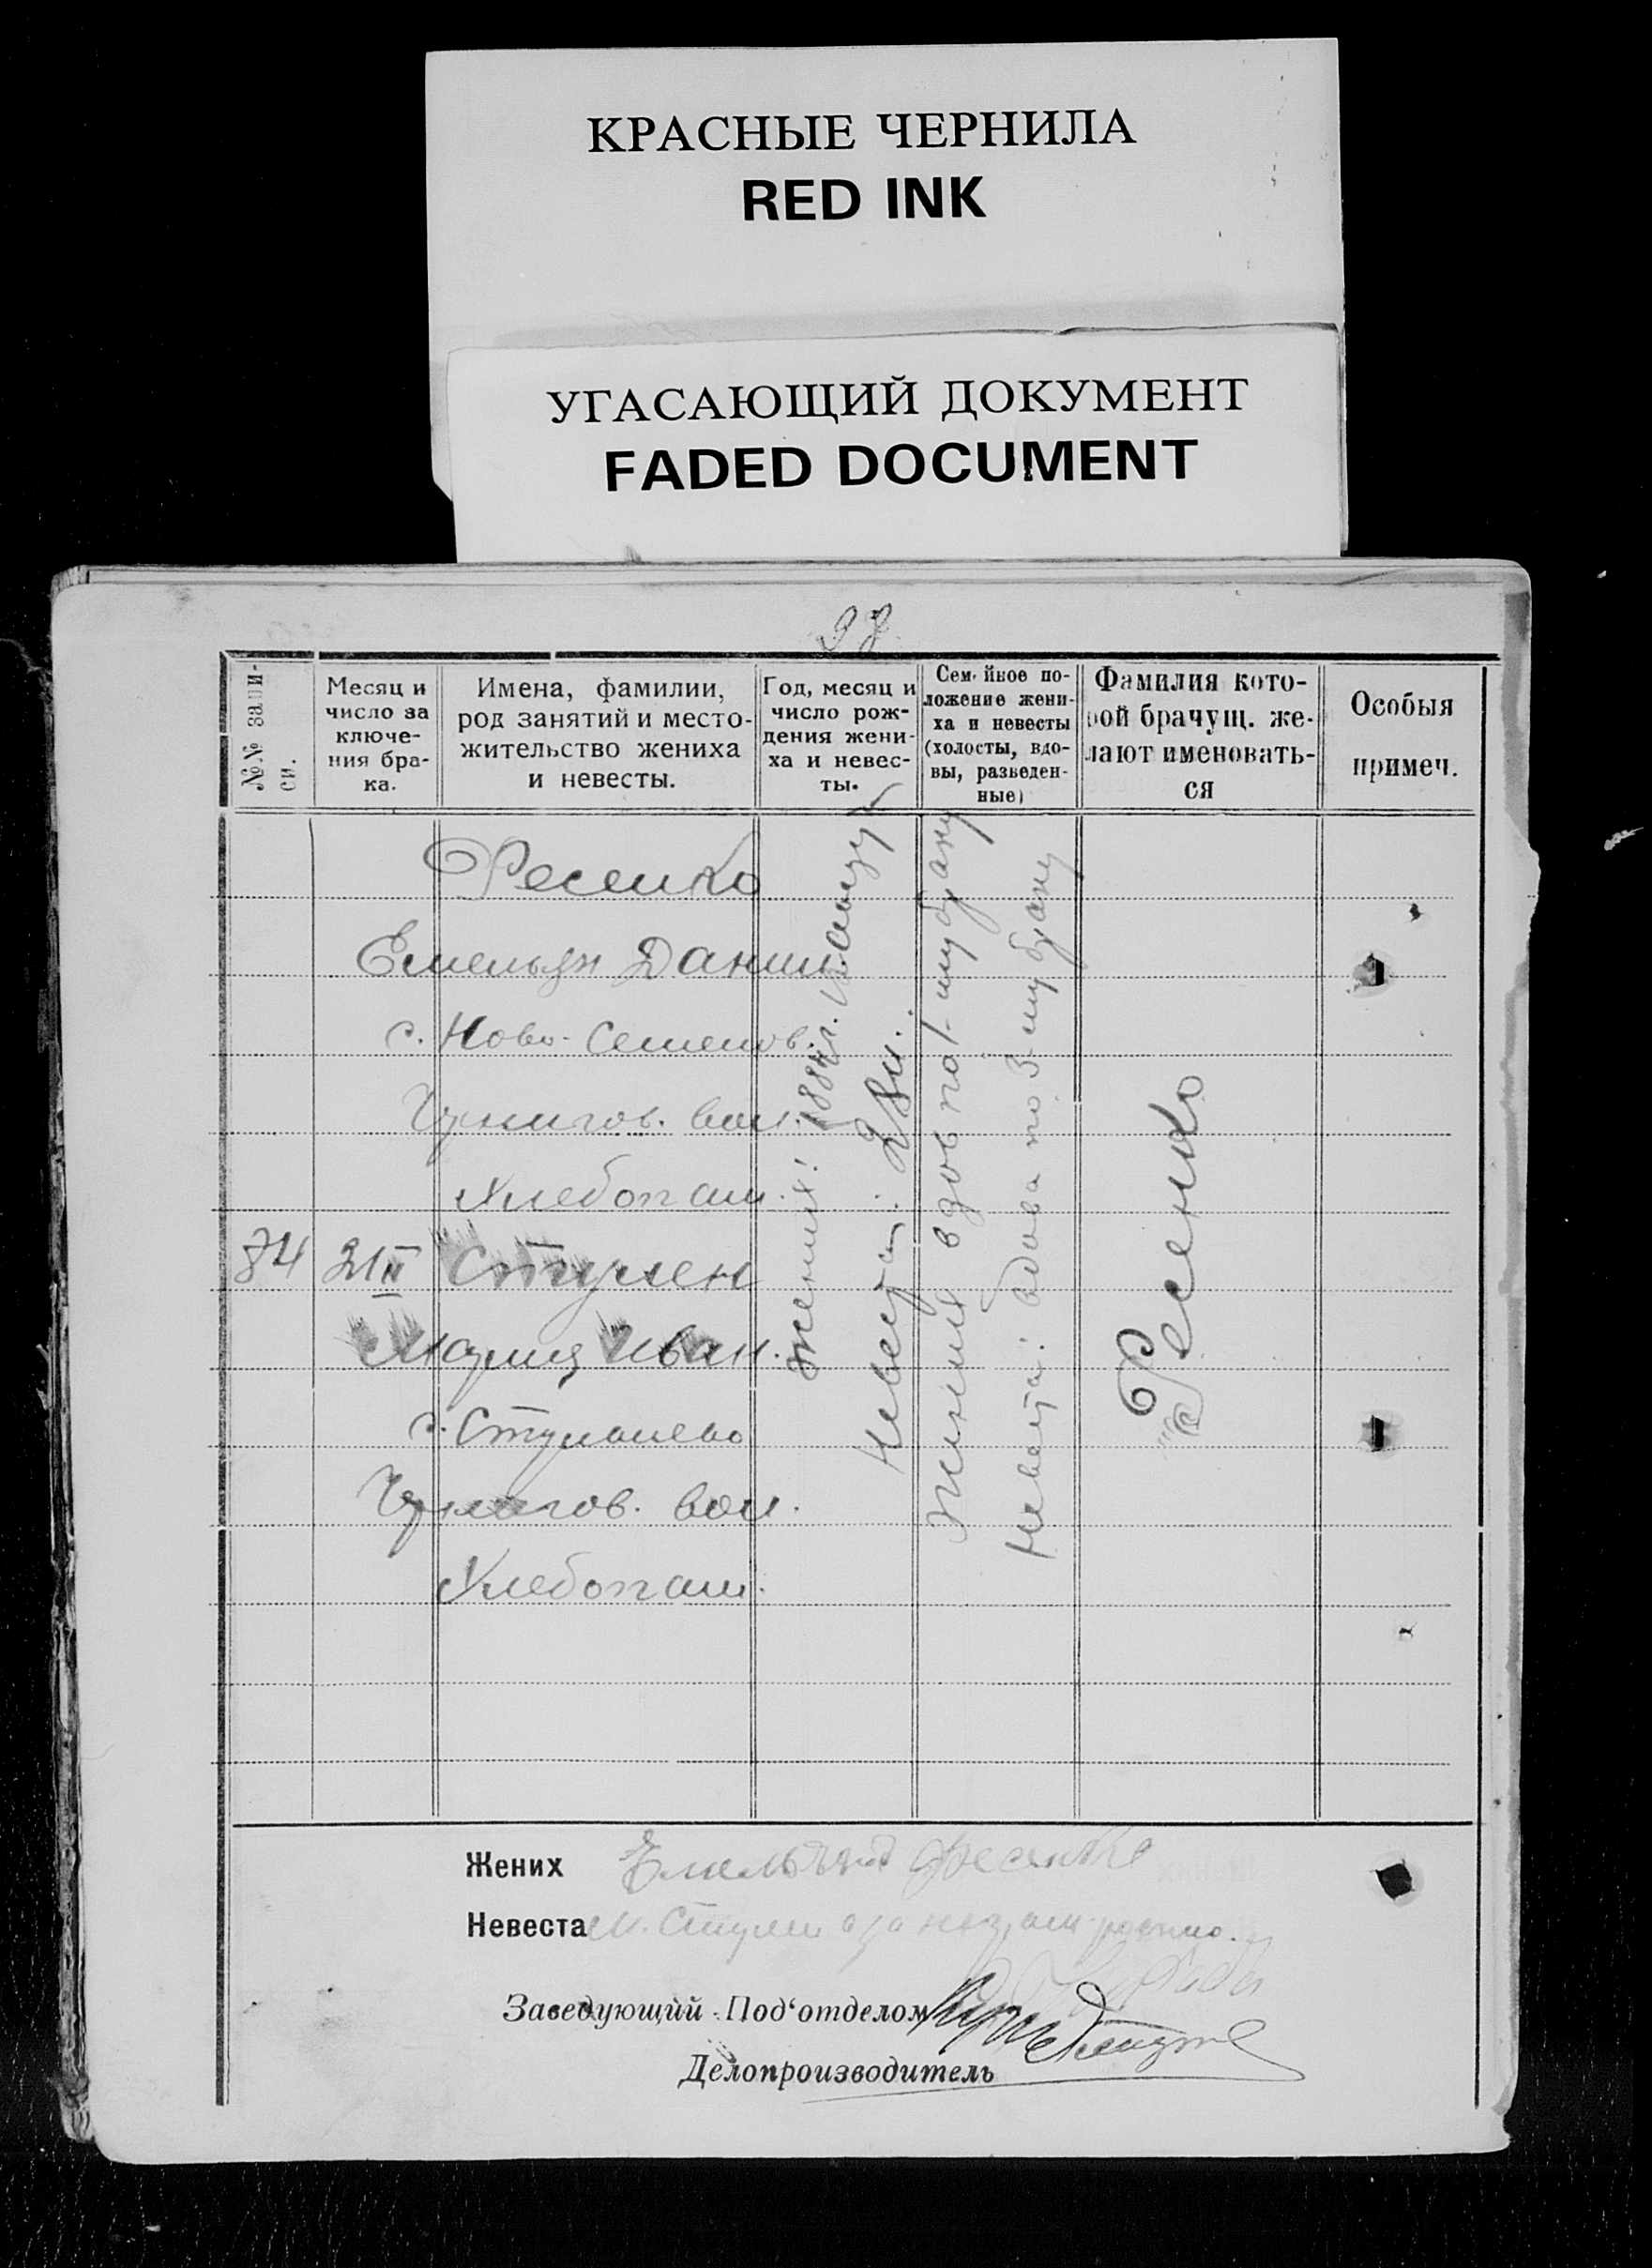 КРАСНЫЕ ЧЕРНИЛА
RED INK
УГАСАЮЩИЙ ДОКУМЕНТ
FADED DOCUMENT
№№ запи-
си.
Месяц и
число за
ключе-
ния бра-
ка.
Имена, фамилии,
род занятий и место-
жительство жениха
и невесты.
Год, месяц и
число рож-
дения жени-
ха и невес-
ты.
Семейное по-
ложение жени-
ха и невесты
(холосты, вдо-
вы, разведен-
ные)
Фамилия кото-
рой брачущ. же-
лают именовать-
ся
Особыя
примеч.
Фесенко
Емельян Данил.
с. Ново-Семенов.
Чернигов. вол.
Хлебопаш.
84
21/II
Стулен
Мария Иван.
с.
Чернигов. вол.
Хлебопаш.
Жених: 188
Невеста: 28 л.
Жених вдов по 1-му браку
Невеста: вдова по 3-му браку
Фесенко
Жених Емельян Фесенко
Невеста
Заведующий Под‘отделом
Делопроизводитель